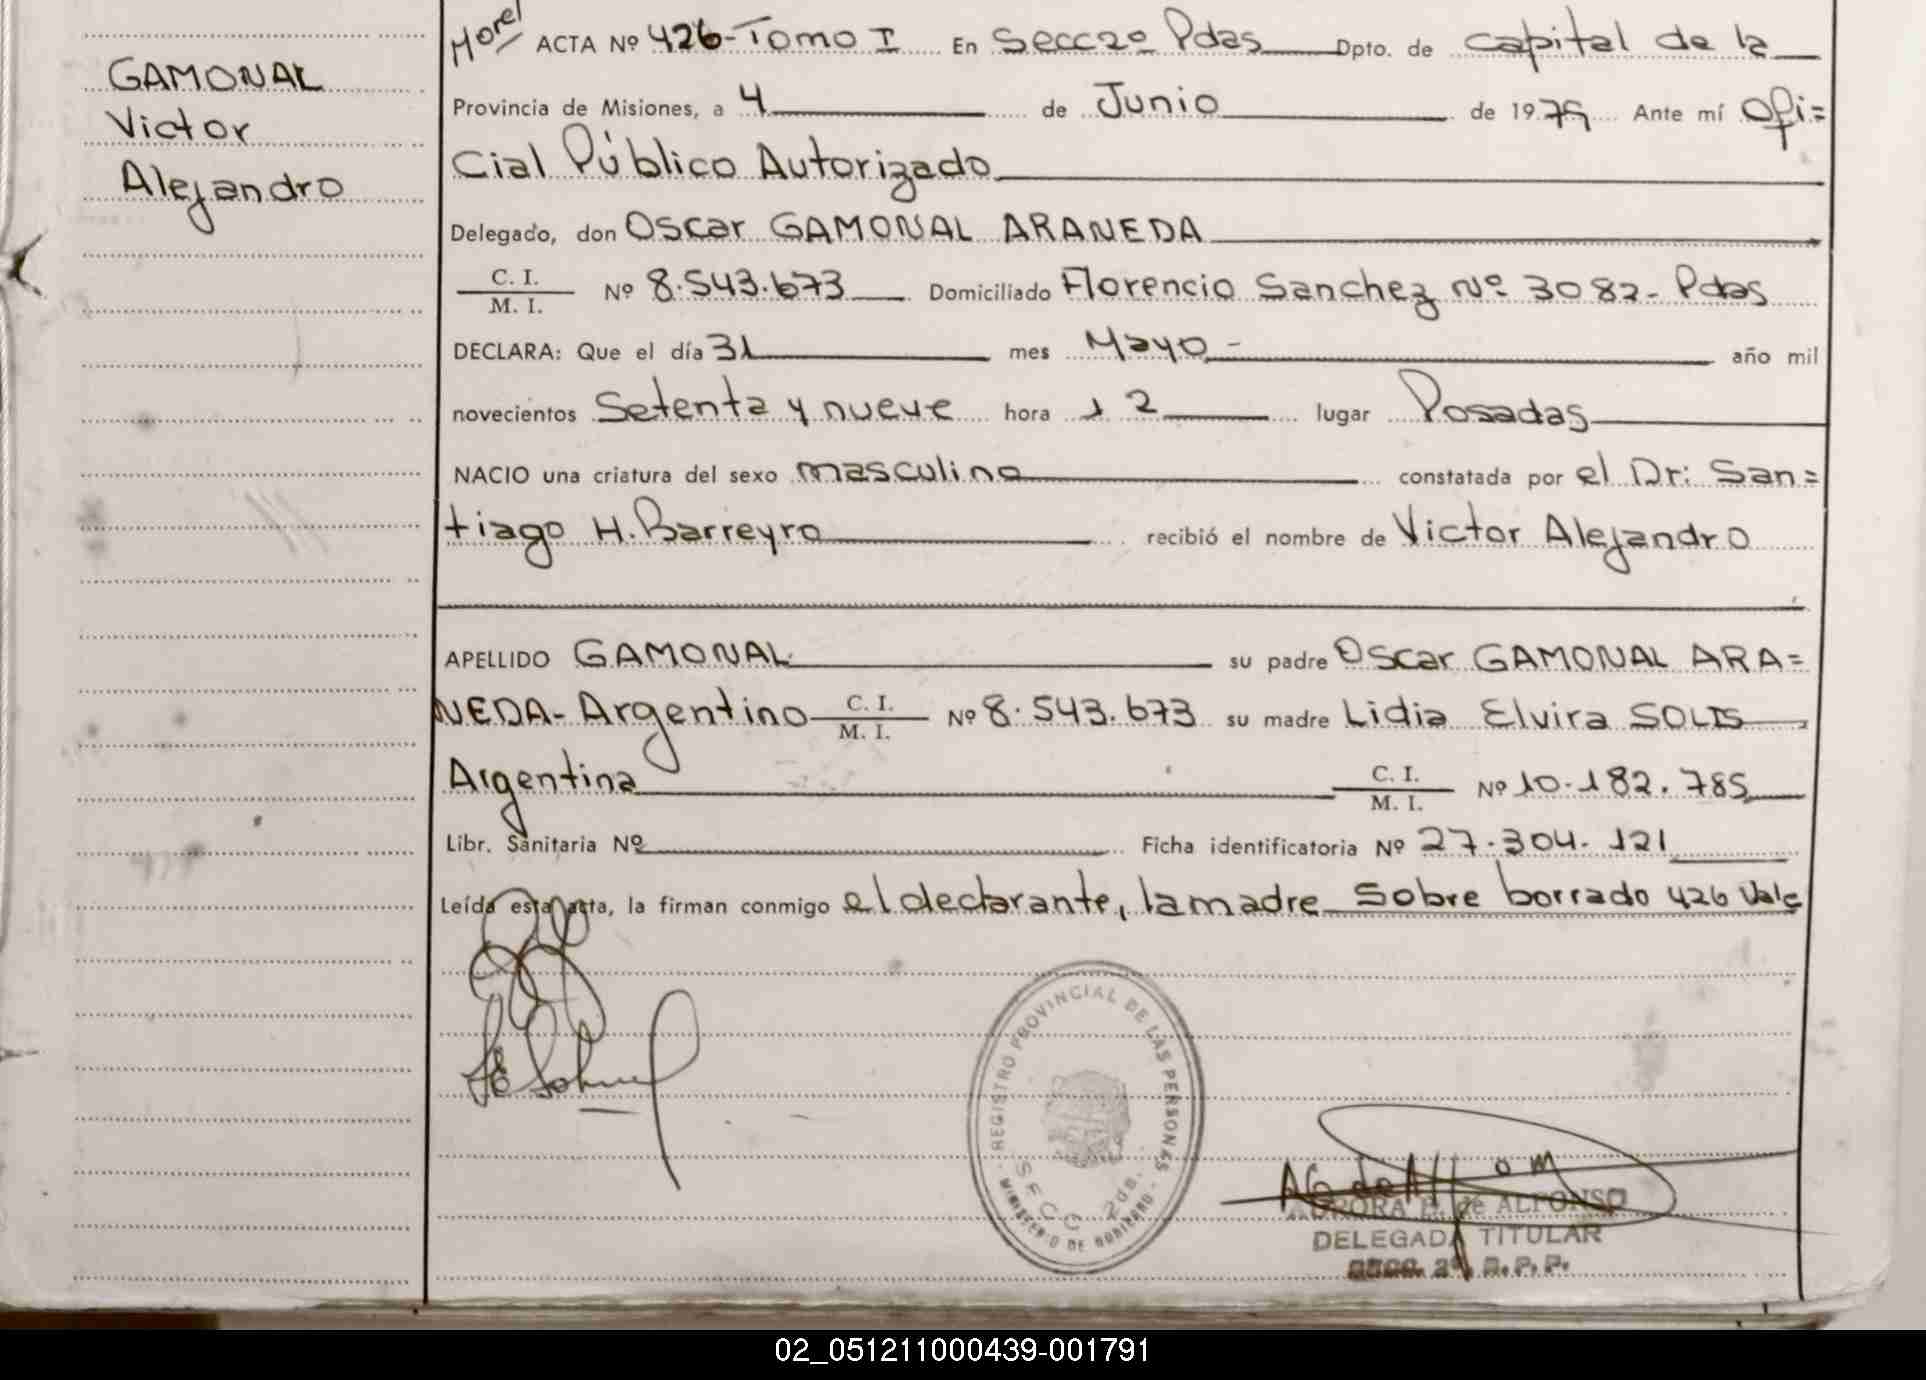 GAMONAL
Victor
Alejandro
Morel ACTA Nº 426-Tomo I En Secc 2º Pdas Dpto. de capital de la
Provincia de Misiones, a 4 de Junio de 1979 Ante mí Ofi=
cial Público Autorizado
Delegado, don Oscar GAMONAL ARANEDA
C. I.
M. I. Nº 8.543.673 Domiciliado Florencio Sanchez Nº 3082- Pdas
DECLARA: Que el día 31 mes Mayo - año mil
novecientos Setenta y nueve hora 12 lugar Posadas
NACIO una criatura del sexo masculino constatada por el Dr: San=
tiago H. Barreyro recibió el nombre de Victor Alejandro
APELLIDO GAMONAL su padre Oscar GAMONAL ARA=
NEDA- Argentino C. I. M. I. Nº 8.543.673 su madre Lidia Elvira SOLIS
Argentina C. I. M. I. Nº 10.182.785
Libr. Sanitaria Nº Ficha identificatoria Nº 27.304.121
Leída esta acta, la firman conmigo el declarante, la madre Sobre borrado 426 Vale
REGISTRO PROVINCIAL DE LAS PERSONAS
SECC 2da.
MINISTERIO DE GOBIERNO
AURORA de ALFONSO
DELEGADA TITULAR
SECC. 2ª R.P.P.
02_051211000439-001791